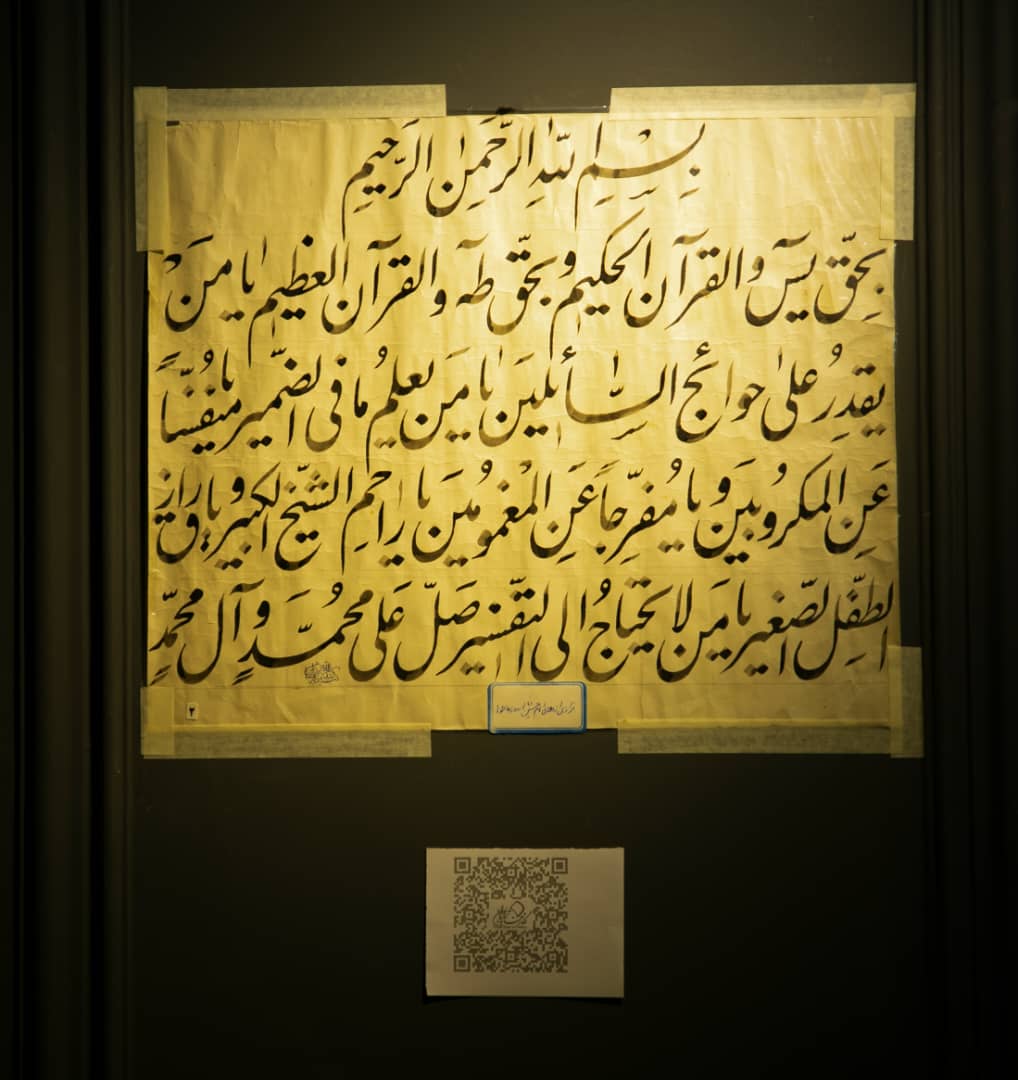 بِسْمِ اللّٰهِ الرَّحْمٰنِ الرَّحیمِ
بِحَقِّ یٓس وَالقرآن الحکیم و بحَقّ طٓه والقرآن العظیم یا مَنْ
یَقدِرُ عَلیٰ حوائج السّٰائلینَ یٰا مَن یَعلمُ مٰا فی الضّمیر یا مُنَفِّساً
عَنِ المکروبینَ و یا مُفَرِّجاً عَنِ الْمَغمومینَ یا رٰاحِمَ الشّیخ الکبیر و یا رازق
الطِفّل الصّغیر یا مَن لا یَحتاجُ الی التّفسیر صَلّ عَلی مُحَمَّدٍ وَ آل محمّدٍ
۲